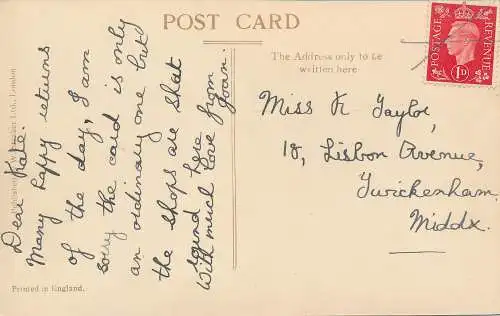 POST CARD
The Address only to be
written here
POSTAGE
REVENUE
1D
Dear Kate.
Many happy returns
of the day, I am
sorry the card is only
an ordinary one but
the shops are shut
round here.
With much love from
Joan.
Miss K Taylor,
18, Lisbon Avenue,
Twickenham.
Middx.
Ltd., London
Printed in England.